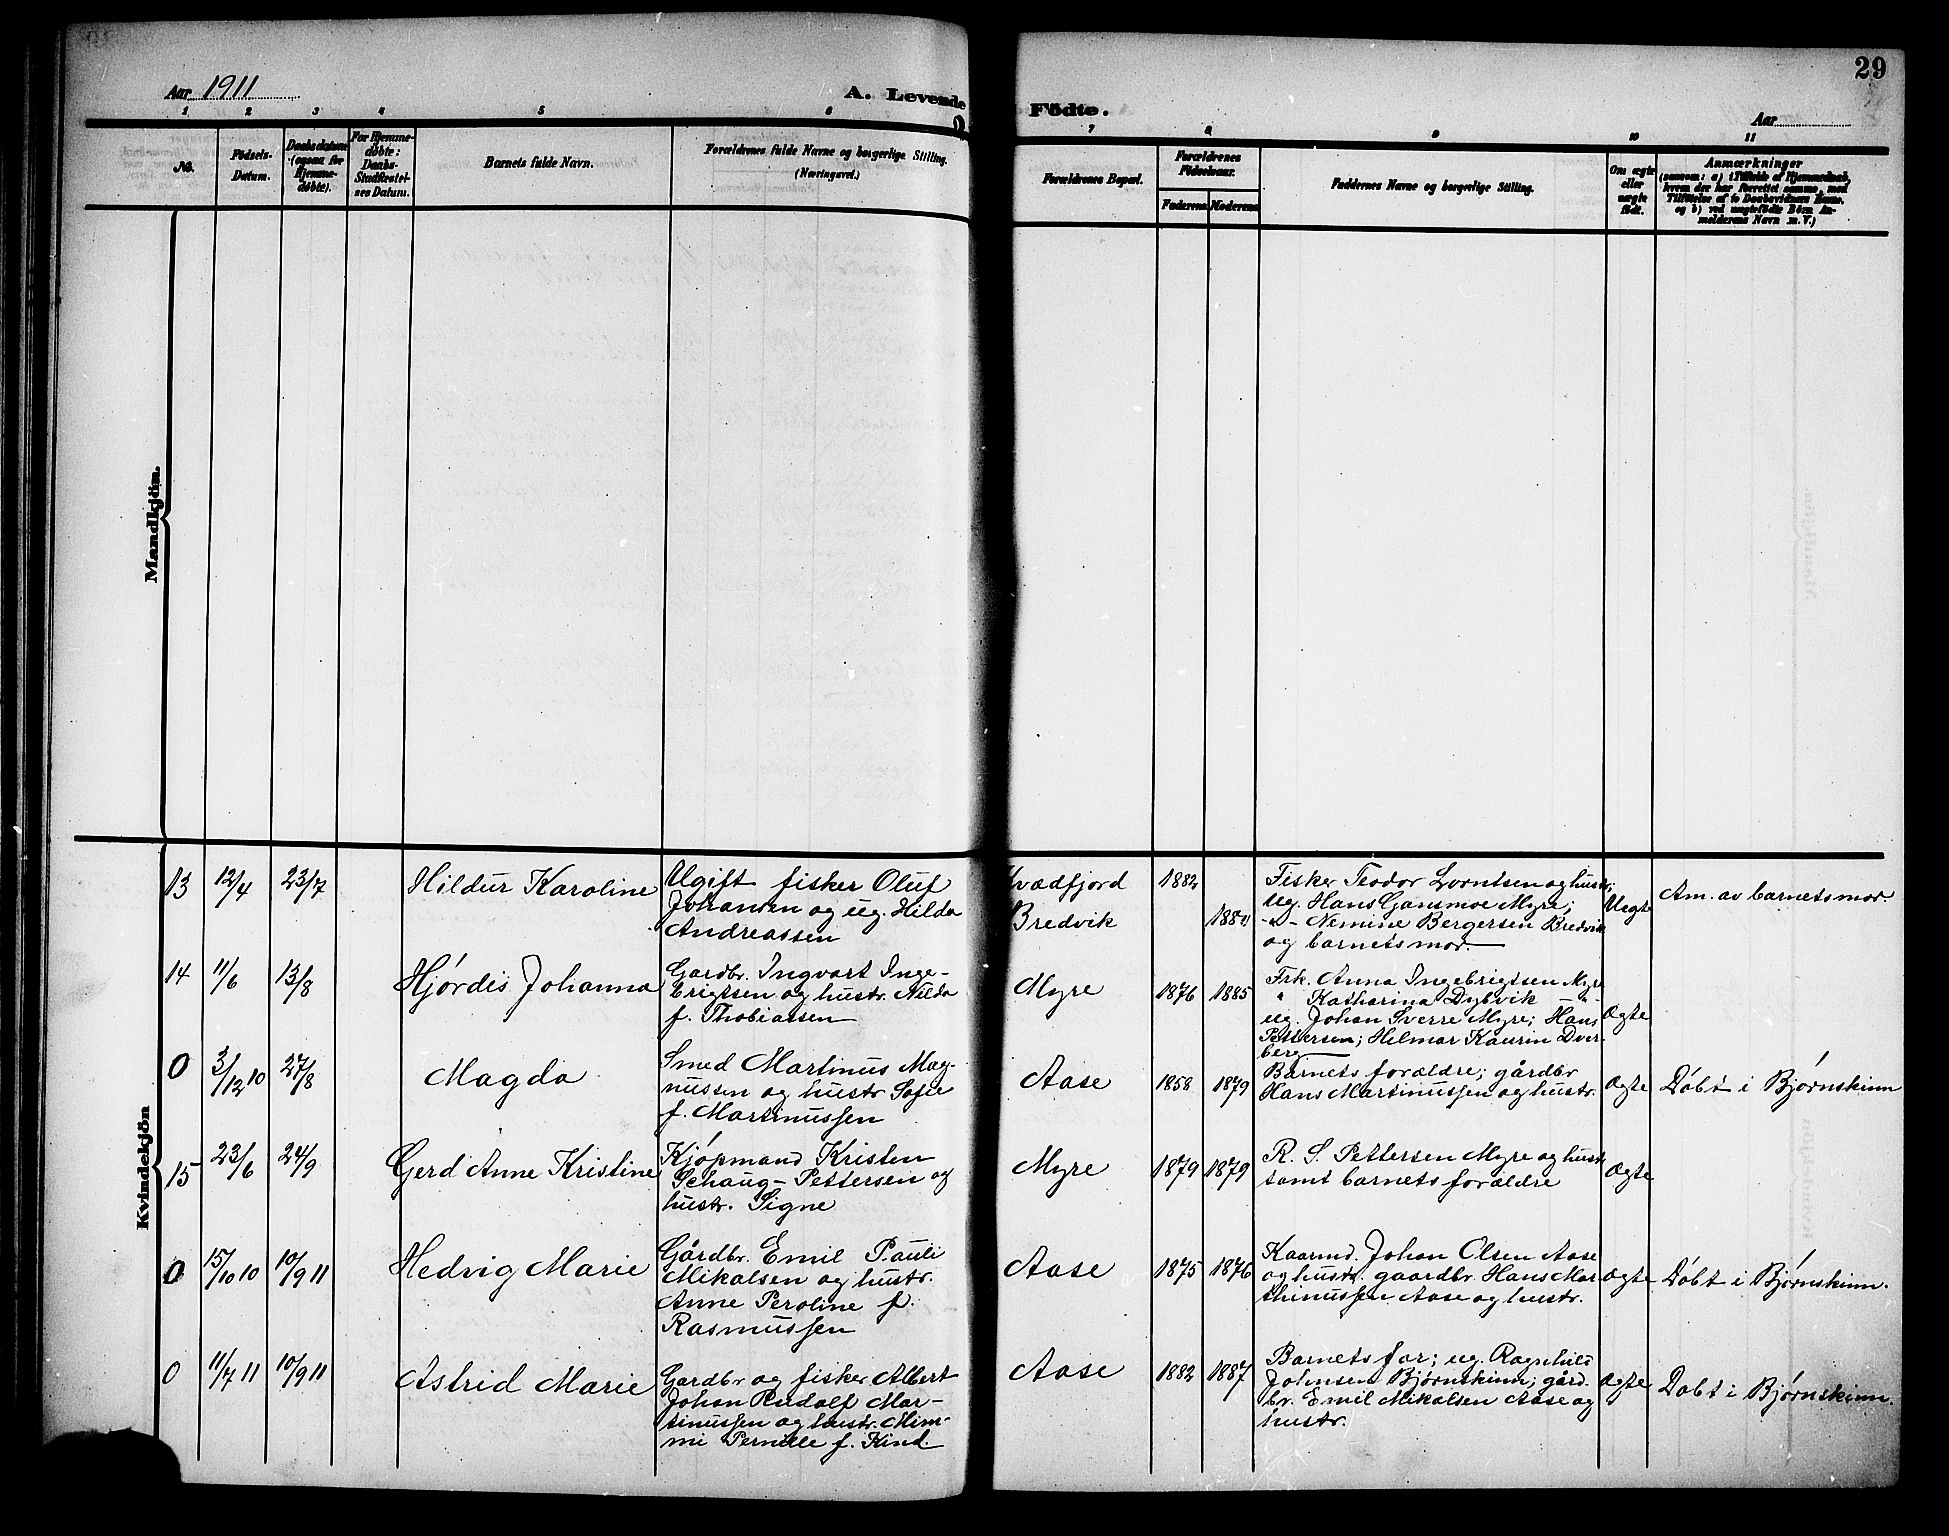 29
Aar 1911
A. Levende Födte.
Aar
1 2 3 4 5 6 7 8 9 10 11
No.
Födsels-
Datum.
Daabsdatum
(ogsaa for
Hjemme-
døbte).
For Hjemme-
døbte:
Daabs-
Stadfæstel-
ses Datum.
Barnets fulde Navn.
Forældrenes fulde Navne og borgerlige Stilling.
(Næringsvei.)
Forældrenes Bopæl.
Forældrenes
Fødselsaar.
Faderens Moderens
Faddernes Navne og borgerlige Stilling.
Om ægte
eller
uægte
født.
Anmærkninger
Mandkjön.
Kvindekjön
13 12/4 23/7 Hildur Karoline
Ugift fisker Oluf
Johansen og ug. Hilda
Andreassen
Kvædfjord
Bredvik
1882
Fisker Teodor Lorntsen og hustr;
ug. Hans Gansmoe Myre;
-"- Nemine Bergersen Bredvik
og barnets mor.
Uegte
Am. av barnets mor.
14 11/6 13/8 Hjórdis Johanna
Gardbr. Ingvart Inge-
brigtsen og hustr. Nilda
f. Thobiassen
Myre
1876 1885
Frk. Anna Ingebrigtsen Myre
" Katharina Dybvik -"-
ug. Johan Sverre Myre; Hans
Pettersen; Hilmar Kaurin Dver-
berg
Ægte
0 3/12 10 27/8 Magda
Smed Martinus Mag-
nussen og hustr Sofie
f. Martinussen
Aase
1858 1879
Barnets forældre; gårdbr
Hans Martinussen og hustr.
Ægte
Döbt i Bjørnskinn
15 23/6 24/9 Gerd Anne Kristine
Kjópmand Kristen
Schaug-Pettersen og
hustr. Signe
Myre
1879 1879
R. S. Pettersen Myre og hustr
samt barnets forældre
Ægte
0 15/10 10 10/9 11 Hedvig Marie
Gårdbr. Emil Pauli
Mikalsen og hustr.
Anne Peroline f.
Rasmussen
Aase
1875 1876
Kaarmd. Johan Olsen Aase
og hustr. gaardbr. Hans Mar
thinussen Aase og hustr.
Ægte
Döbt i Bjørnskinn.
0 11/7 11 10/9 11 Astrid Marie
Gardbr og fisker Albert
Johan Rudolf Mar-
tinussen og hustr. Mim-
mi Pernille f. Kind.
Aase
1882 1887
Barnets far; ug. Ragnhild
Johnsen Bjørnskinn; gård-
br. Emil Mikalsen Aase og
hustr.
Ægte
Döbt i Bjørnskinn.